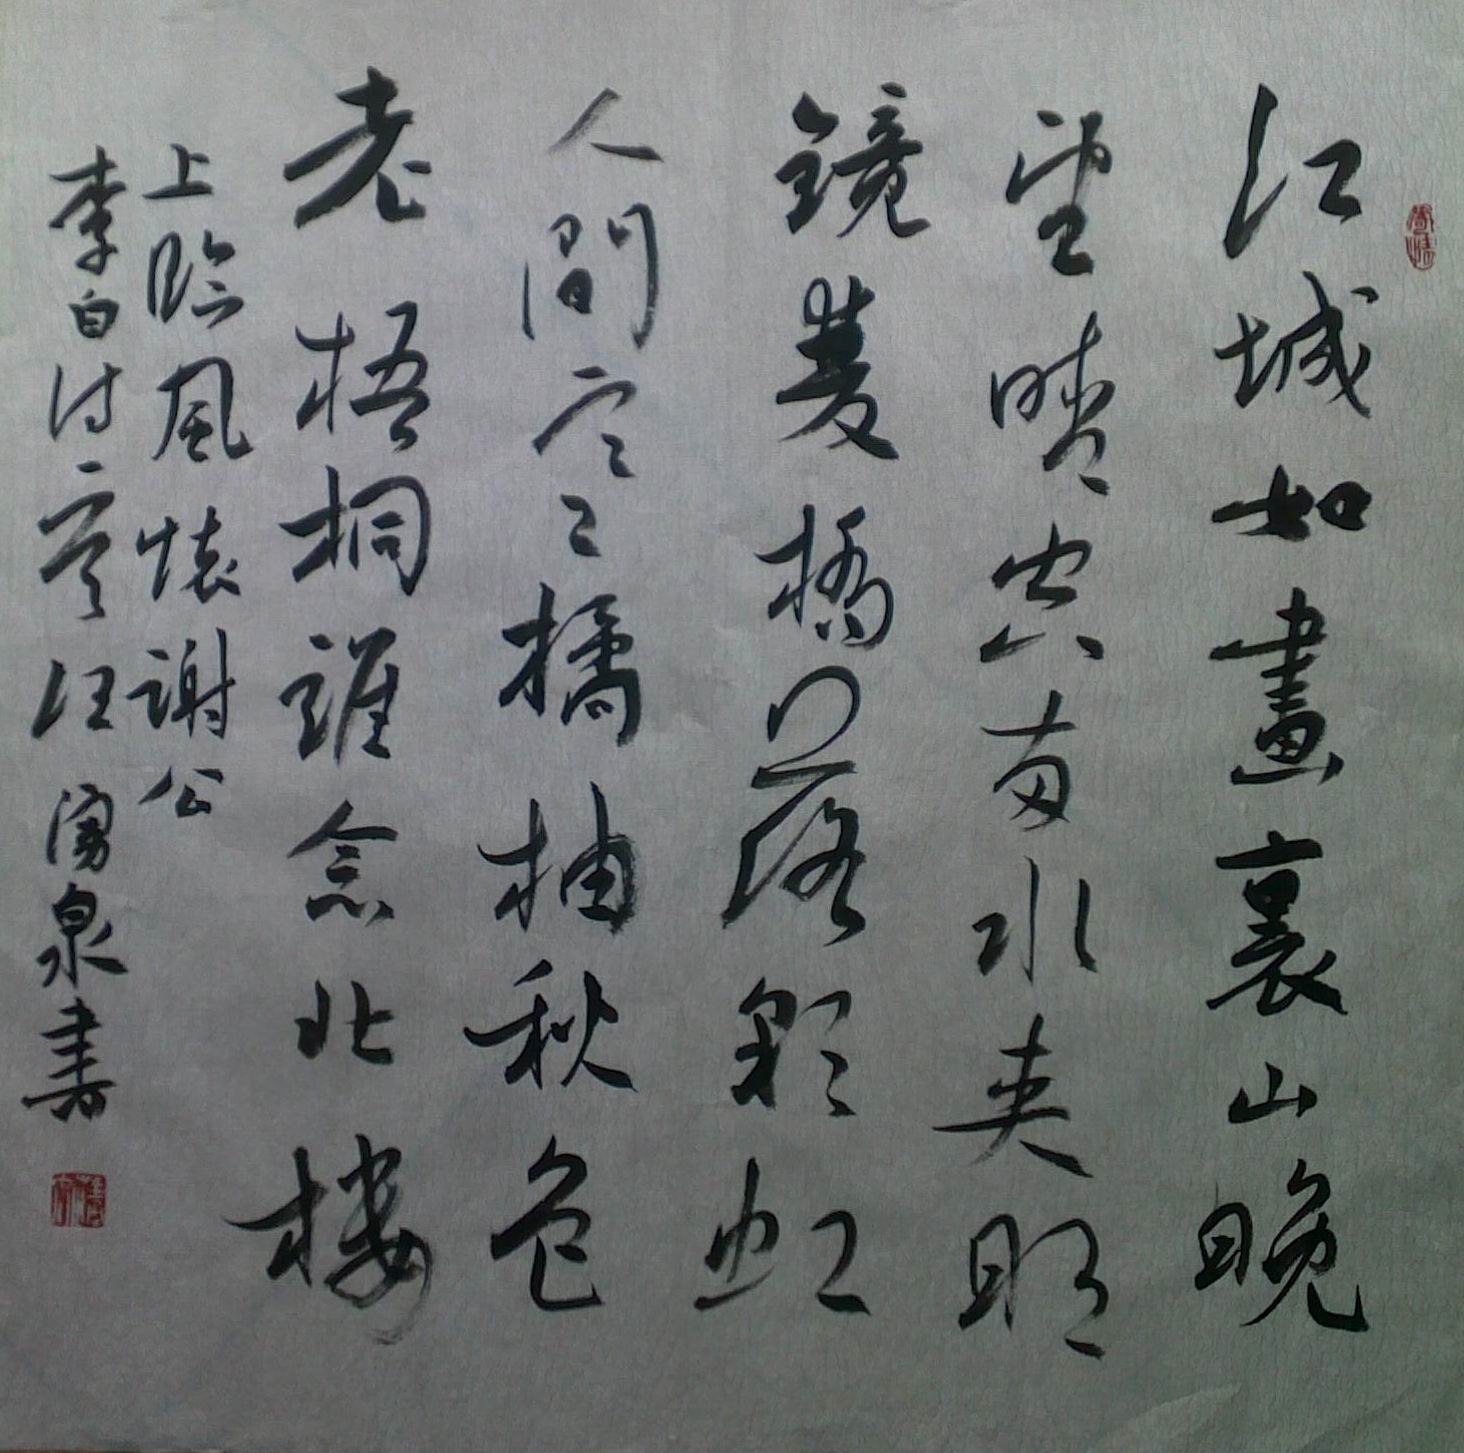 江城如畫裏山晚
望晴空兩水夾明
鏡雙橋落彩虹
人間寒橘柚秋色
老梧桐誰念北樓
上臨風懷謝公
李白詩汪湧泉書